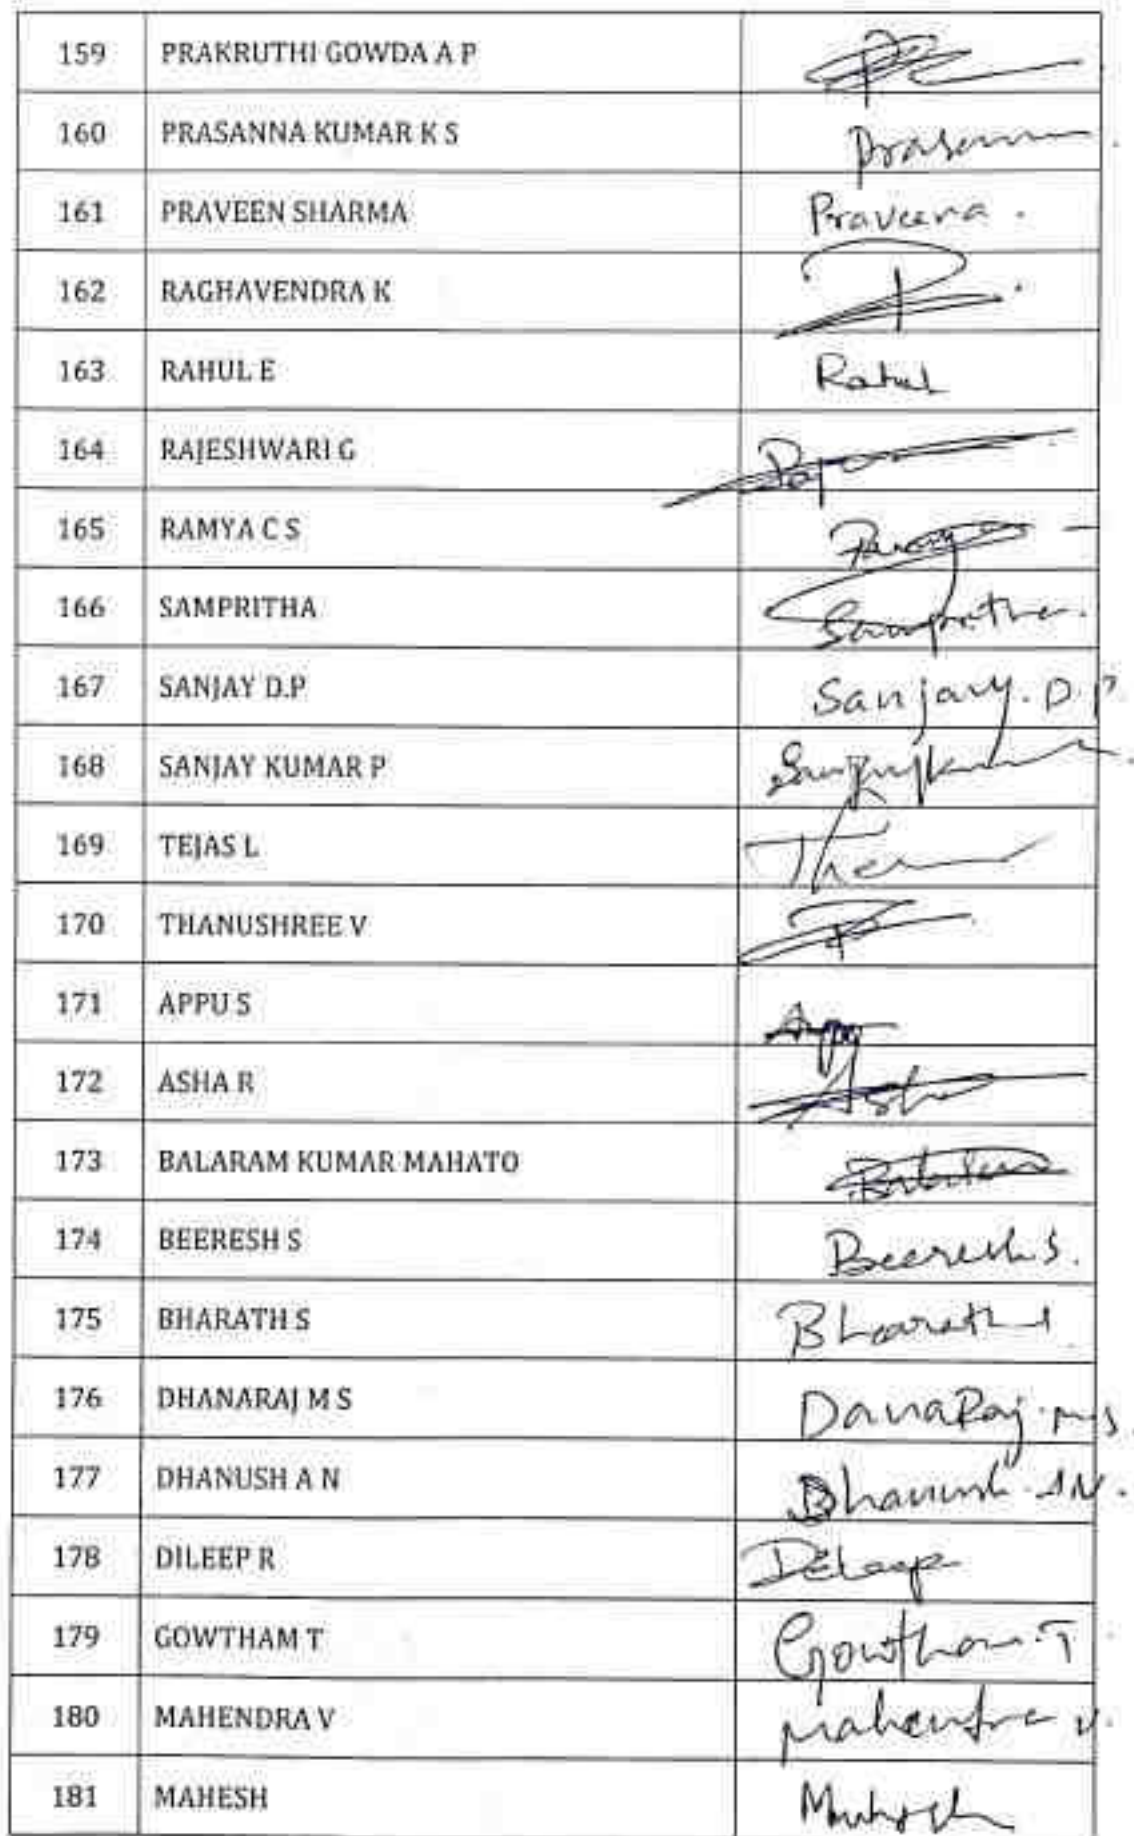 159 PRAKRUTHI GOWDA A P
160 PRASANNA KUMAR K S Prasann
161 PRAVEEN SHARMA Praveena.
162 RAGHAVENDRA K
163 RAHUL E Rahul
164 RAJESHWARI G
165 RAMYA C S
166 SAMPRITHA Sampritha.
167 SANJAY D.P Sanjay. D.P
168 SANJAY KUMAR P
169 TEJAS L
170 THANUSHREE V
171 APPU S
172 ASHA R Asha
173 BALARAM KUMAR MAHATO
174 BEERESH S Beeresh S.
175 BHARATH S Bharath S
176 DHANARAJ M S DanaRaj. M S.
177 DHANUSH A N Dhanush. AN.
178 DILEEP R Dileep
179 GOWTHAM T Gowtham. T
180 MAHENDRA V Mahendra V.
181 MAHESH